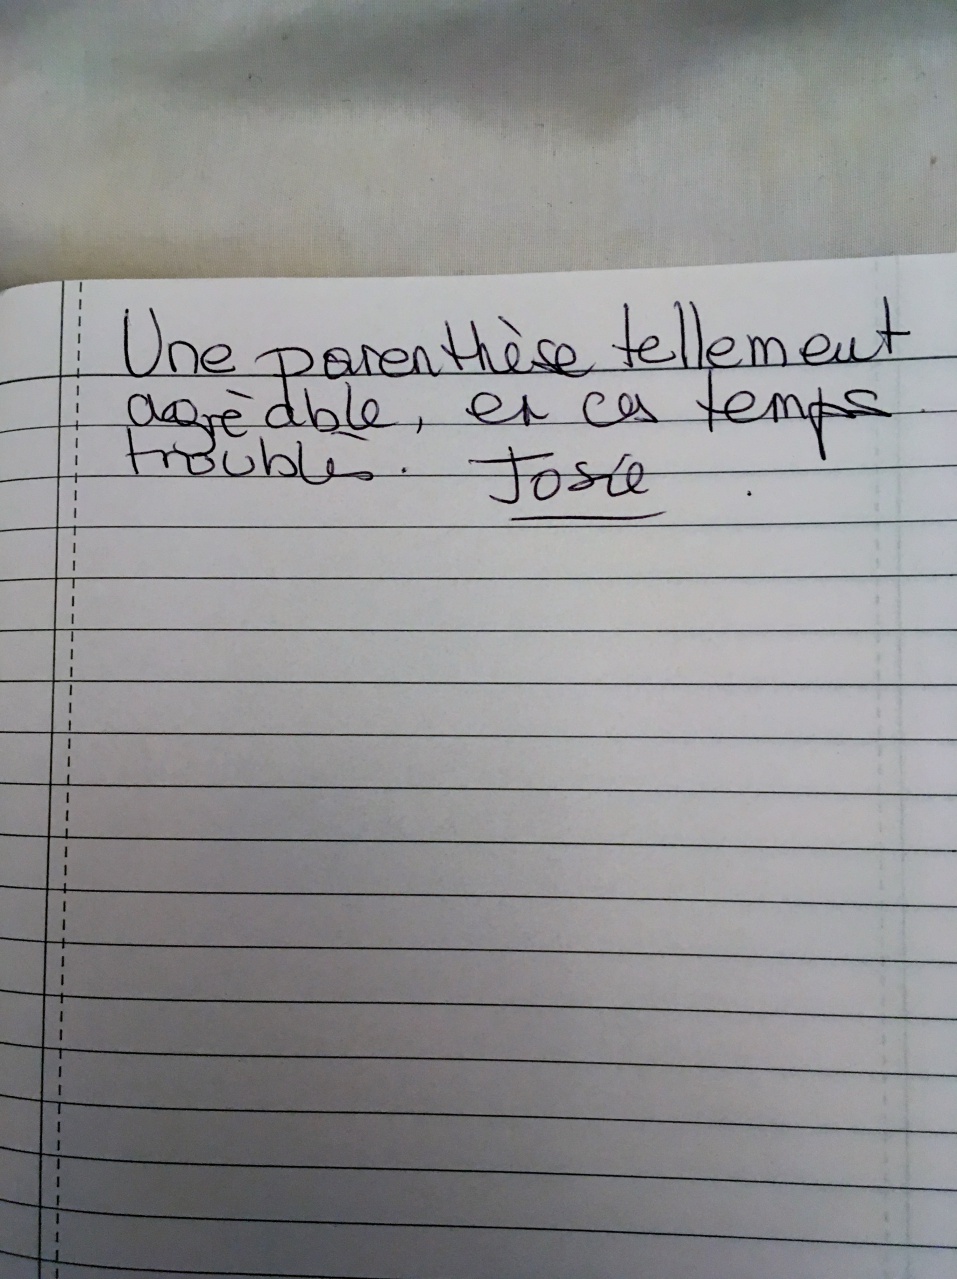 Une parenthèse tellement
agrèable, en ces temps
troublès. Josie